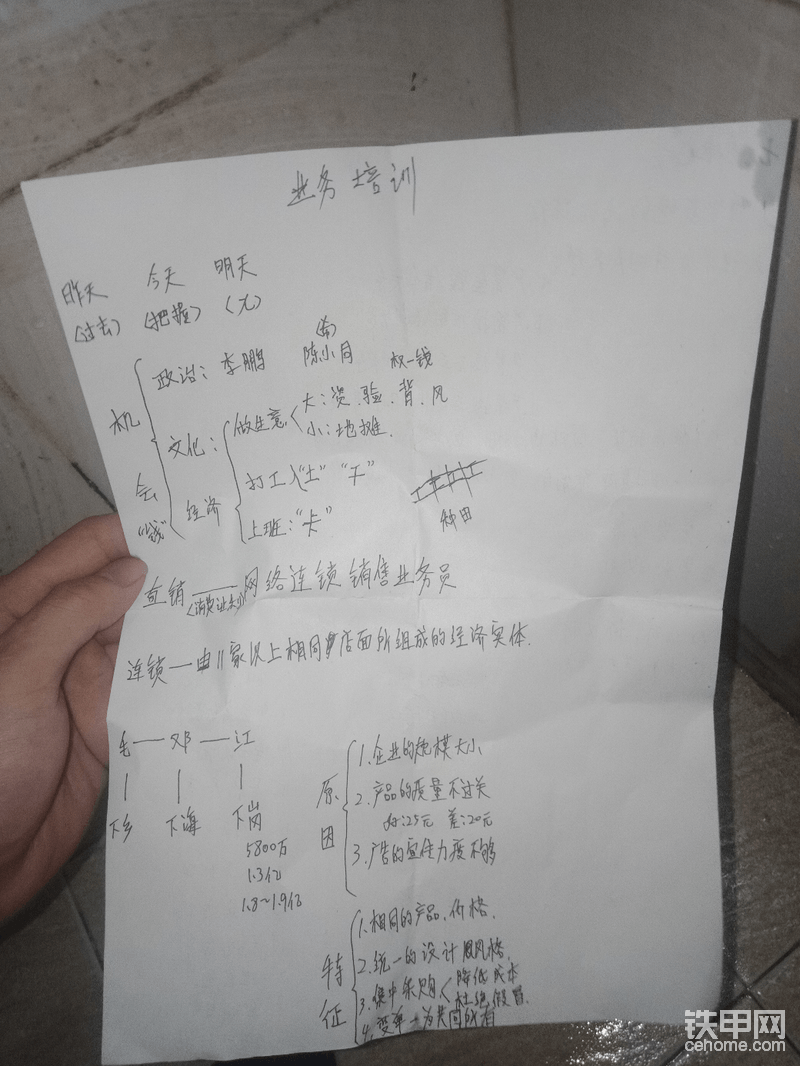 业务培训
昨天 今天 明天
(过去) (把握) (尤)
机会"钱"
政治: 李鹏 陈小同 权-钱
文化:
经济
做生意 大:资.验.背.风
小:地摊.
打工 "土" "干"
上班:"卡"
种田
直销 —— 网络连锁销售业务员
连锁—由11家以上相同店面所组成的经济实体.
毛—邓—江
下乡 下海 下岗
5800万
1.3亿
1.8~1.9亿
原因
1.企业的规模大小
2.产品的质量不过关
好:25元 差:20元
3.广告的宣传力度不够
特征
1.相同的产品.价格.
2.统一的设计风格.
3.集中采购 降低成本
杜绝假冒.
4.变单一为共同所有
铁甲网
cehome.com